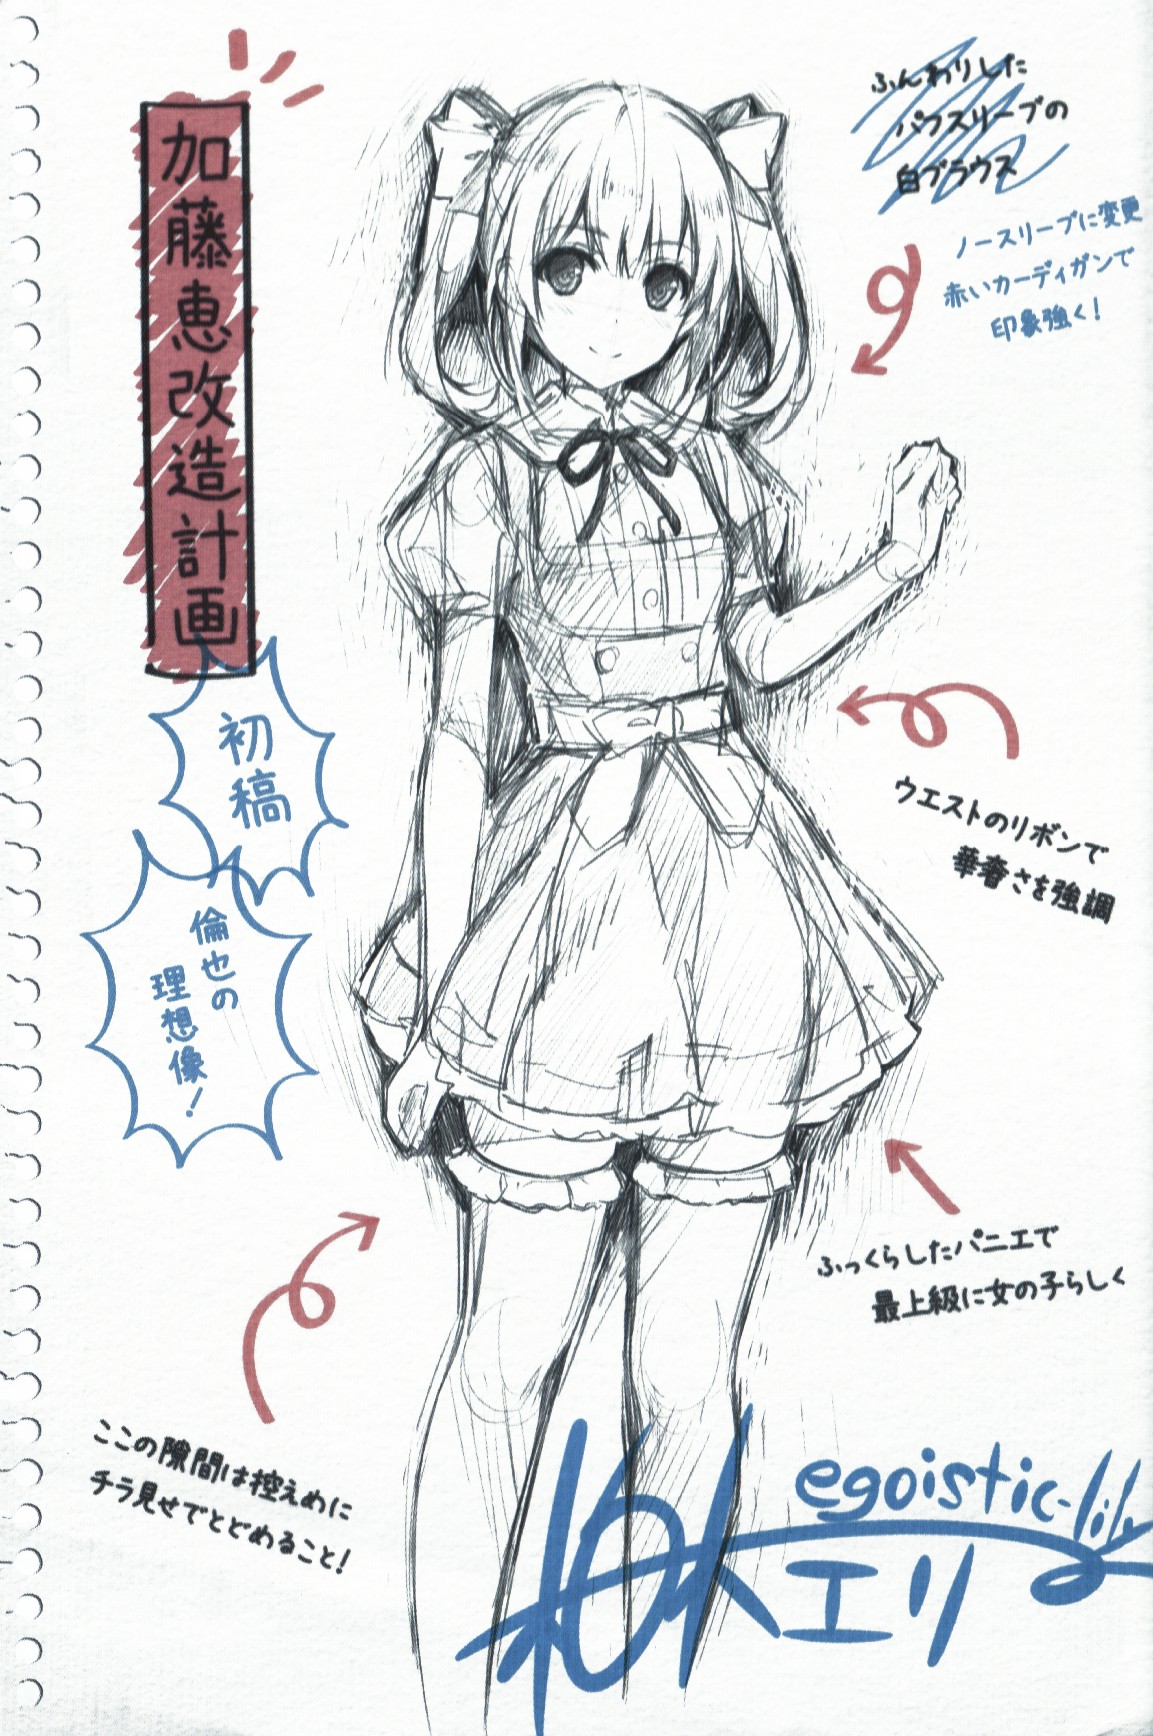 加藤恵改造計画
初稿
倫也の
理想像！
ふんわりした
パフスリーブの
白ブラウス
ノースリーブに変更
赤いカーディガンで
印象強く！
ウエストのリボンで
華奢さを強調
ふっくらしたパニエで
最上級に女の子らしく
ここの隙間は控えめに
チラ見せでとどめること！
egoistic-lily
柏木エリ